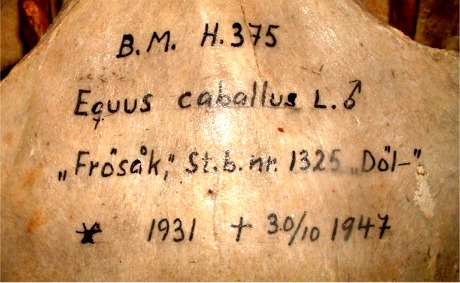 B.M. H.375
Equus caballus L. ♂
„Frösåk," St.b.nr. 1325 „Döl-"
* 1931 + 30/10 1947